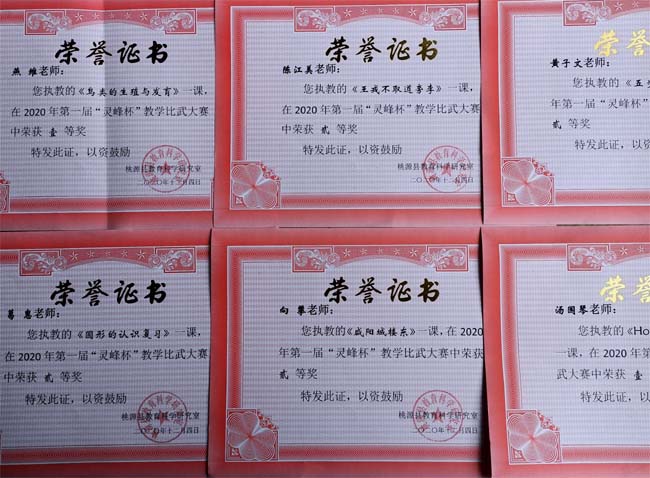 荣誉证书
燕 雄老师：
您执教的《鸟类的生殖与发育》一课，
在2020年第一届“灵峰杯”教学比武大赛
中荣获 壹 等奖
特发此证，以资鼓励
桃源县教育科学研究室
二〇二〇年十二月四日
荣誉证书
陈江美老师：
您执教的《王戎不取道旁李》一课，
在2020年第一届“灵峰杯”教学比武大赛
中荣获 贰 等奖
特发此证，以资鼓励
桃源县教育科学研究室
二〇二〇年十二月四日
荣誉
黄子文老师：
您执教的《五
在2020年第一届
贰 等奖
特发此证，以
荣誉证书
惠老师：
您执教的《图形的认识复习》一课，
在2020年第一届“灵峰杯”教学比武大赛
中荣获 贰 等奖
特发此证，以资鼓励
桃源县教育科学研究室
二〇二〇年十二月四日
荣誉证书
向 攀老师：
您执教的《咸阳城楼东》一课，在2020
年第一届“灵峰杯”教学比武大赛中荣获
贰 等奖
特发此证，以资鼓励
桃源县教育科学研究室
二〇二〇年十二月四日
荣誉
汤国琴老师：
您执教的《Ho
一课，在2020年第
武大赛中荣获 壹
特发此证，以